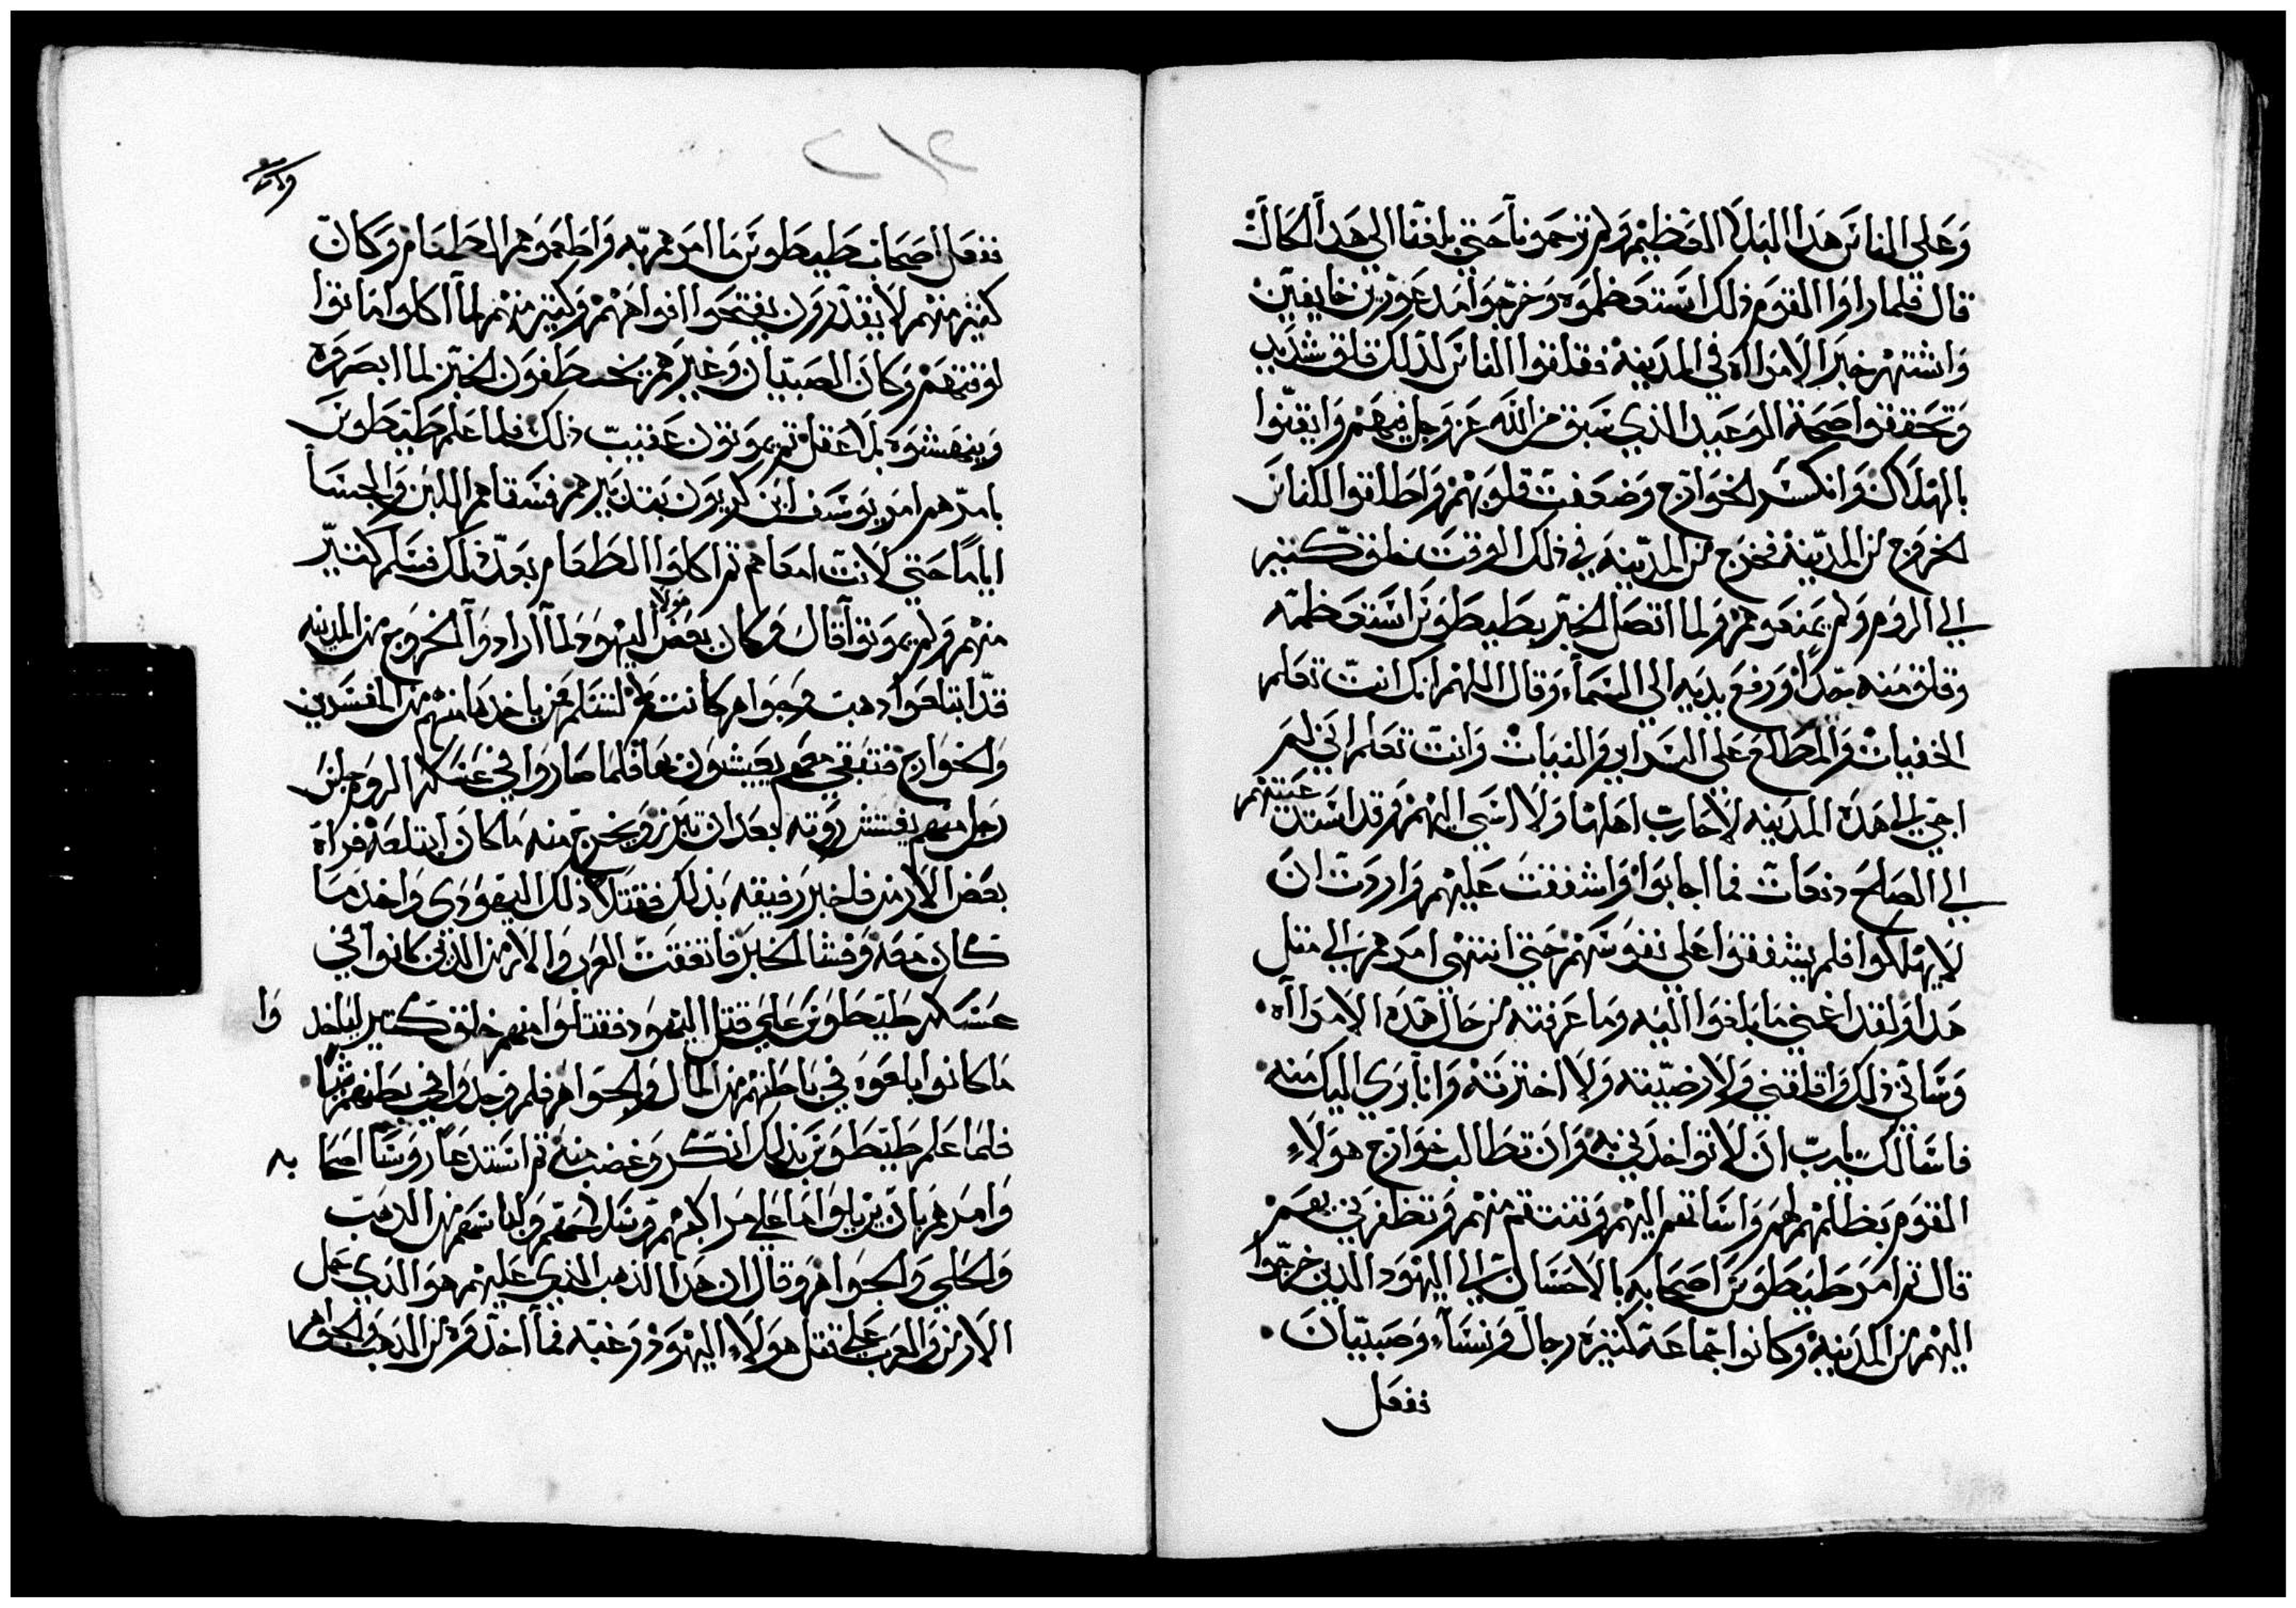 وعلى الناس هدا البلا العظيم ولم ترحمونا حتي بلغنا الي هدا الحال
قال فلما راوا القوم ذلك استعظموه وخرجوا مدعورين خايفين
واشتهر خبر الامراه في المدينه فقلقوا الناس لدلك قلق شديد
وتحققوا صحة الوعيد الذي سبق من الله عز وجل فيهم وايقنوا
بالهلاك وانكسر الخوارج وضعفت قلوبهم واطلقوا للناس
الخروج من المدينه فخرج من المدينه في ذلك الوقت خلق كتير
الي الروم ولم يمنعوهم ولما اتصل الخبر بطيطوس استعظمه
وقلق منه جدا ورفع يديه الي السماء وقال اللهم انك انت تعلم
الخفيات والمطلع علي السراير والنيات وانت تعلم اني لم
اجي الي هده المدينه لاحارب اهلها ولا اسي اليهم وقد استدعيتهم
الي الصلح دفعات فما اجابوا واشفقت عليهم واردت ان
لا يهلكوا فلم يشفقوا علي نفوسهم حتي انتهي امرهم الي متل
هدا ولقد اغمني ما بلغوا اليه وما عرفته من حال هده الامراه
وساني ذلك واقلقني ولا رضيته ولا اخترته وانا بري اليك منه
فاسالك يارب ان لا تواخدني به وان تطالب خوارج هولاء
القوم بظلمهم لهم واساتهم اليهم وتنتقم منهم وتظفرني بهم
قال تم امر طيطوس اصحابه بالاحسان الي اليهود الدين خرجوا
اليهم من المدينه وكانوا جماعة كتيره رجال ونساء وصبيان
ففعل
ففعل اصحاب طيطوس ما امرهم به واطعموهم الطعام وكان
كتير منهم لا يقدرون يفتحوا افواههم وكتير منهم لما اكلوا ماتوا
لوقتهم وكان الصبيان وغيرهم يخطفون الخبز لما ابصروه
وينهشوه بلا عقل تم يموتون عقيب ذلك فلما علم طيطوس
بامرهم امر يوسف ابن كريون بتدبيرهم فسقاهم اللبن والحسا
اياما حتي لانت امعاهم تم اكلوا الطعام بعد ذلك فسلم كتير
منهم ولم يموتوا قال وكان بعض هولا اليهود لما اراد وا الخروج من المدينه
قد ابتلعوا دهب وجواهر كانت لهم لتسلم من ياخدها منهم من المفسدين
والخوارج فتبقي معهم يعيشون بها فلما صاروا في عسكر الروم جلس
رجل منهم يفتش روته بعد ان تبرز ويخرج منه ما كان ابتلعه فراه
بعض الارمن فاخبر رفيقه بذلك فقتلا ذلك اليهودى واخد ما
كان معه وفشا الخبر فاتفقت العرب والارمن الذين كانوا في
عسكر طيطوس علي قتل اليهود فقتلوا منهم خلق كتير لياخد وا
ما كانوا بلعوه في باطنهم من المال والجواهر فلم يوجدوا في بطنهم شيا
فلما علم طيطوس بذلك انكر وغضب منه تم استدعا روسا اصحابه
وامرهم بان يزيلوا ما علي مراكبهم وسلاحهم ولباسهم من الدهب
والحلي والجواهر وقال ان هدا الذهب الذي عليهم هو الذي عمل
الارمن والعرب علي قتل هولاء اليهود رغبه فما اخدوه من الدهب والجواهر